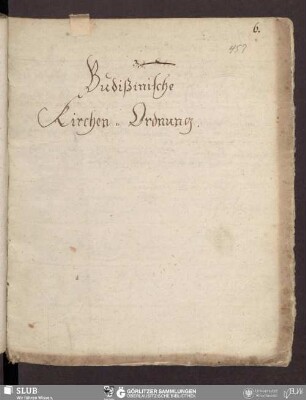 6.
457
Budißinische
Kirchen-Ordnung.
SLUB
Wir führen Wissen.
GÖRLITZER SAMMLUNGEN
OBERLAUSITZISCHE BIBLIOTHEK